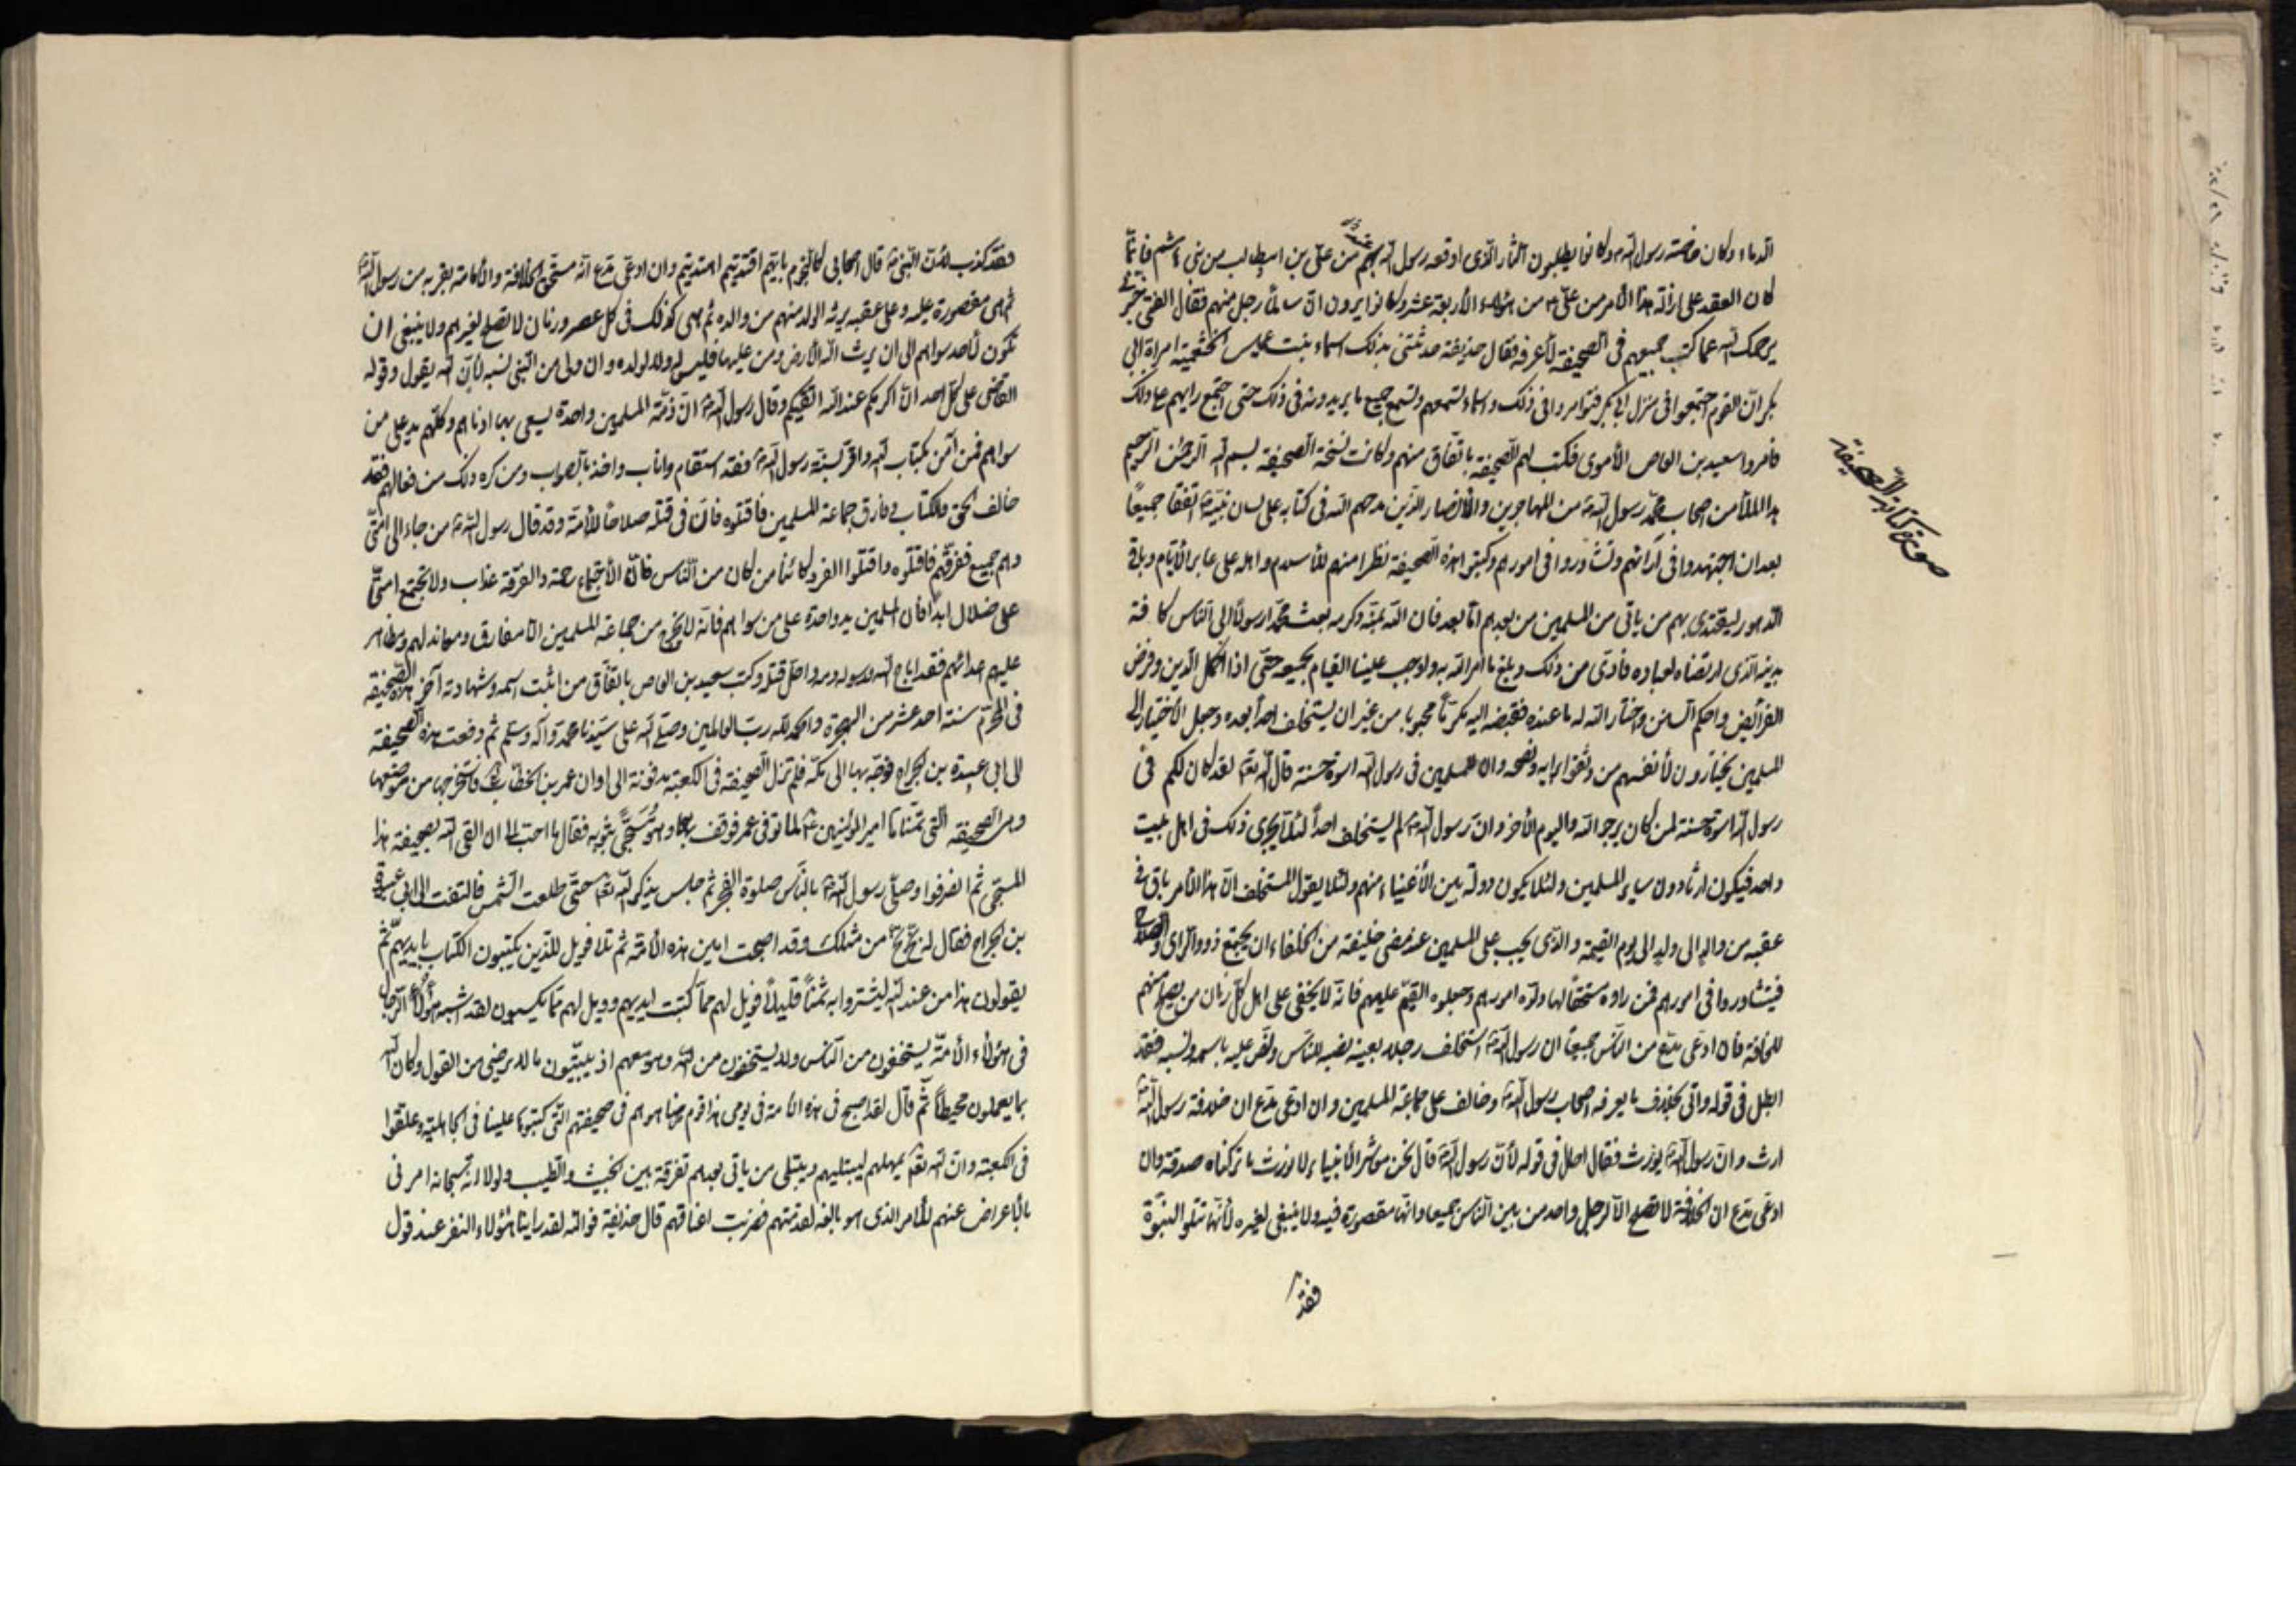 الدماء وكان خاصته رسول الله وكانوا يطلبون الثأر الذى اوقعه رسول الله بهم من على بن ابيطالب من بنى هاشم فانما
كان العقد على ازالة هذا الأمر من على من هؤلاء الأربعة عشر وكانوا يرون ان سالماً رجل منهم فقال الفتى خبّرنى
يرحمك الله عما كتب جميعهم فى الصحيفة لأعرفه فقال حذيفة حدثتنى بذلك اسماء بنت عميس الخثعمية امراة ابى
بكر ان القوم اجتمعوا فى منزل ابى بكر فتوامروا فى ذلك واسماء تسمعهم وتسمع جميع ما يريدونه فى ذلك حتى اجتمع رايهم على ذلك
فامروا سعيد بن العاص الأموى فكتب لهم الصحيفة باتفاق منهم وكانت نسخة الصحيفة بسم الله الرحمن الرحيم
هذا ما اتفق الملأ من اصحاب محمد رسول الله من المهاجرين والأنصار الذين مدحهم الله فى كتابه على لسان نبيه اتفقا جميعاً
بعد ان اجتهدوا فى آرائهم وتشاوروا فى امورهم وكتبوا هذه الصحيفة نظرا منهم للأسلام واهله على غابر الأيام وباقى
الدهور ليقتدى بهم من ياتى من المسلمين من بعدهم اما بعد فان الله بمنه وكرمه بعث محمدا رسولاً الى الناس كافة
بدينه الذى ارتضاه لعباده فادى من ذلك وبلغ ما امر الله به واوجب علينا القيام بجميعه حتى اذا اكمل الدين وفرض
الفرائض واحكم السنن واختار الله له ما عنده فقبضه اليه مكرّماً محبوبا من غير ان يستخلف احداً بعده وجعل الأختيار الى
المسلمين يختارون لأنفسهم من وثقوا برايه ونصحه وان للمسلمين فى رسول الله اسوة حسنة قال الله تعالى لقد كان لكم فى
رسول الله اسوة حسنة لمن كان يرجو الله واليوم الأخر وان رسول الله لم يستخلف احداً لئلا يجرى ذلك فى اهل بيت
واحد فيكون ارثا دون ساير المسلمين ولئلا يكون دولة بين الأغنياء منهم ولئلا يقول المستخلف ان هذا الأمر باق فى
عقبه من والد الى ولد الى يوم القيمة والذى يجب على المسلمين عند مضى خليفة من الخلفاء ان يجتمع ذووا الراى والصلاح
فيتشاوروا فى امورهم فمن راوه مستحقاً لها ولوه امورهم وجعلوه القيّم عليهم فانه لا يخفى على اهل كل زمان من يصلح منهم
للخلافة فان ادعى مدع من الناس جميعا ان رسول الله استخلف رجلا بعينه نصبه للناس ونص عليه باسمه ونسبه فقد
ابطل فى قوله واتى بخلاف ما يعرفه اصحاب رسول الله وخالف على جماعة المسلمين وان ادعى مدع ان خلافة رسول الله
ارث وان رسول الله يورث فقال احال فى قوله لأن رسول الله قال نحن معاشر الأنبياء لا نورث ما تركناه صدقة وان
ادعى مدع ان الخلافة لا تصلح الا لرجل واحد من بين الناس جميعا وانها مقصورة فيه ولا ينبغى لغيره لأنها تتلو النبوة
صورة كتابة الصحيفة
فقد
فقد كذب لأن النبى قال اصحابى كالنجوم بايهم اقتديتم اهتديتم وان ادعى مدع انه مستحق الخلافة والأمامة بقربه من رسول الله
ثم هى مقصورة عليه وعلى عقبه يرثه الولد منهم من والده ثم هى كذلك فى كل عصر وزمان لا تصلح لغيرهم ولا ينبغى ان
تكون لأحد سواهم الى ان يرث الله الأرض ومن عليها فليس له ولا لولده وان ولى من النبى نسبه لأن الله يقول وقوله
القاضى على كل احد ان اكرمكم عند الله اتقيكم وقال رسول الله ان ذمة المسلمين واحدة يسعى بها ادناهم وكلهم يد على من
سواهم فمن آمن بكتاب الله واقر بسنة رسول الله فقد استقام واناب واخذ بالصواب ومن كره ذلك من فعالهم فقد
خالف الحق والكتاب وفارق جماعة المسلمين فاقتلوه فان فى قتله صلاحا للأمة وقد قال رسول الله من جاء الى امتى
وهم جميع ففرقهم فاقتلوه واقتلوا الفرد كائناً من كان من الناس فان الأجتماع رحمة والفرقة عذاب ولا تجتمع امتى
على ضلال ابداً فان المسلمين يد واحدة على من سواهم فانه لا يخرج من جماعة المسلمين الا مفارق ومعاند لهم ومظاهر
عليهم اعدائهم فقد اباح الله ورسوله دمه واحل قتله وكتب سعيد بن العاص باتفاق من اثبت اسمه وشهادته آخر هذه الصحيفة
فى المحرم سنة احد عشر من الهجرة والحمد لله رب العالمين وصلى الله على سيدنا محمد وآله وسلم ثم دفعت هذه الصحيفة
الى ابى عبيدة بن الجراح فوجه بها الى مكة فلم تزل الصحيفة فى الكعبة مدفونة الى اوان عمر بن الخطاب فاستخرجها من موضعها
وهى الصحيفة التى تمناها امير المؤمنين لما توفى عمر فوقف به وهو مسجى بثوبه فقال ما احب الى ان القى الله بصحيفة هذا
المسجى ثم انصرفوا وصلى رسول الله بالناس صلوة الفجر ثم جلس يذكر الله تعالى حتى طلعت الشمس فالتفت الى ابى عبيدة
بن الجراح فقال له بخ بخ من مثلك وقد اصبحت امين هذه الأمة ثم تلا فويل للذين يكتبون الكتاب بايديهم ثم
يقولون هذا من عند الله ليشتروا به ثمناً قليلاً فويل لهم مما كتبت ايديهم وويل لهم مما يكسبون لقد اشبه هؤلاء الرجال
فى هؤلاء الأمة يستخفون من الناس ولا يستخفون من الله وهو معهم اذ يبيتون ما لا يرضى من القول وكان الله
بما يعملون محيطاً ثم قال لقد اصبح فى هذه الأمة فى يومى هذا قوم ضاهوهم فى صحيفتهم التى كتبوها علينا فى الجاهلية وعلقوا
فى الكعبة وان الله تعالى يمهلهم ليبتليهم ويبتلى من ياتى بعدهم تفرقة بين الخبيث والطيب ولولا انه سبحانه امرنى
بالأعراض عنهم للأمر الذى هو بالغه لقدمتهم فضربت اعناقهم قال حذيفة فوالله لقد راينا هؤلاء النفر عند قول